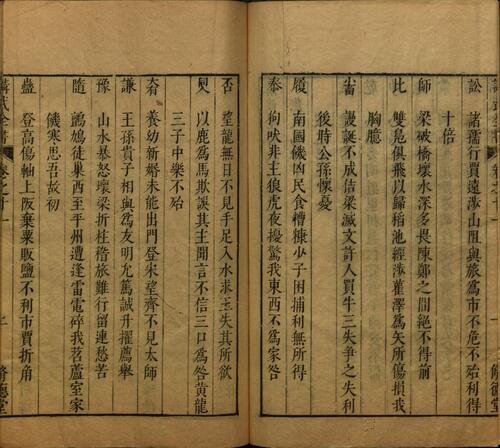 訟 諸孺行賈遠涉山阻與旅為市不危不殆利得
十倍
師 梁破橋壞水深多畏陳鄭之間絕不得前
比 雙鳧俱飛以歸稻池經涉雚澤為矢所傷損我
胸臆
畜 謾誕不成倍梁滅文許人買牛三失爭之失利
後時公孫懷憂
履 南國饑凶民食糟糠少子困捕利無所得
泰 狗吠非主狼虎夜擾驚我東西不為家咎
脩德堂
否 望龍無目不見手足入水求玉失其所欲
以鹿為馬欺誤其主聞言不信三口為咎黃龍
三子中樂不殆
養幼新婚未能出門登宋望齊不見太師
謙 王孫貴子相與為友明允篤誠升擢薦舉
豫 山水暴怒壞梁折柱稽旅難行留連愁苦
隨 鷁鳩徒巢西至平州遭逢雷電碎我葦蘆室家
饑寒思吾故初
蠱 登高傷軸上阪棄粟販鹽不利市賈折角
脩德堂